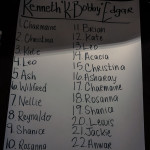 Kenneth "K" Bobby Edgerre
1 Charmaine
2 Christina
3 Kate
4 Leo
5 Ash
6 Wilfred
7 Nellie
8 Reynaldo
9 Shanice
10 Rosanna
11 Brian
12 Kate
13 Leo
14 Acacia
15 Christina
16 Asharay
17 Charmaine
18 Rosanna
19 Shanice
20 Lewis
21 Jackie
22 Anwar